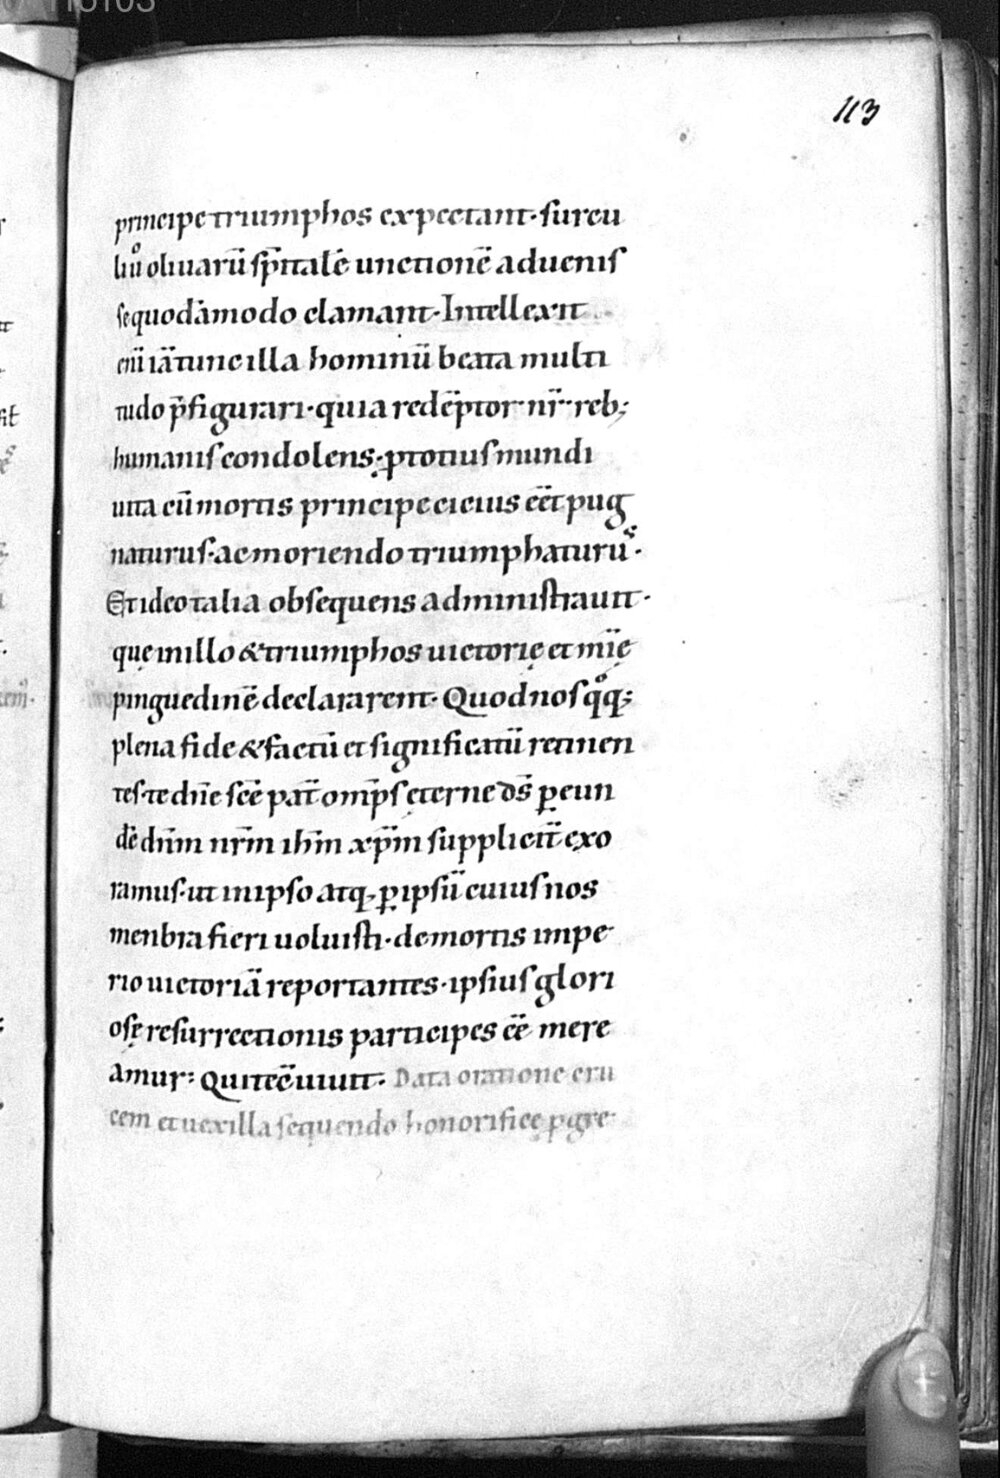 113
principe triumphos expectant· surcu
liuͦ oliuarū sp̄italē unctionē aduenis
se quodāmodo clamant· Intellexit
eni᷑ iā tunc illa hominū beata multi
tudo p̄figurari· quia redēptor nr̄ reb;
humanis condolens; ꝓ totius mundi
uita cū mortis principe eicius eēt pug
naturus· ac moriendo triumphaturus·
Et ideo talia obsequens administrauit·
quę in illo & triumphos uictorię et mīę
pinguedinē declararent· Quod nos qͦq;
plena fide & factū et significatū retinen
tes· te dn̄e sc̄e pat̄ omp̄s ęterne ds̄ ꝑ eun
dē dn̄m nr̄m ih̄m xp̄m supplicit̄ exo
ramus· ut in ipso atq, ꝑ ipsū cuius nos
menbra fieri uoluisti· de mortis impe
rio uictoriā reportantes· ipsius glori
osę resurrectionis participes eē mere
amur: Qui tec̄ uiuit· Data oratione cru
cem et uexilla sequendo honorificę ꝑgre